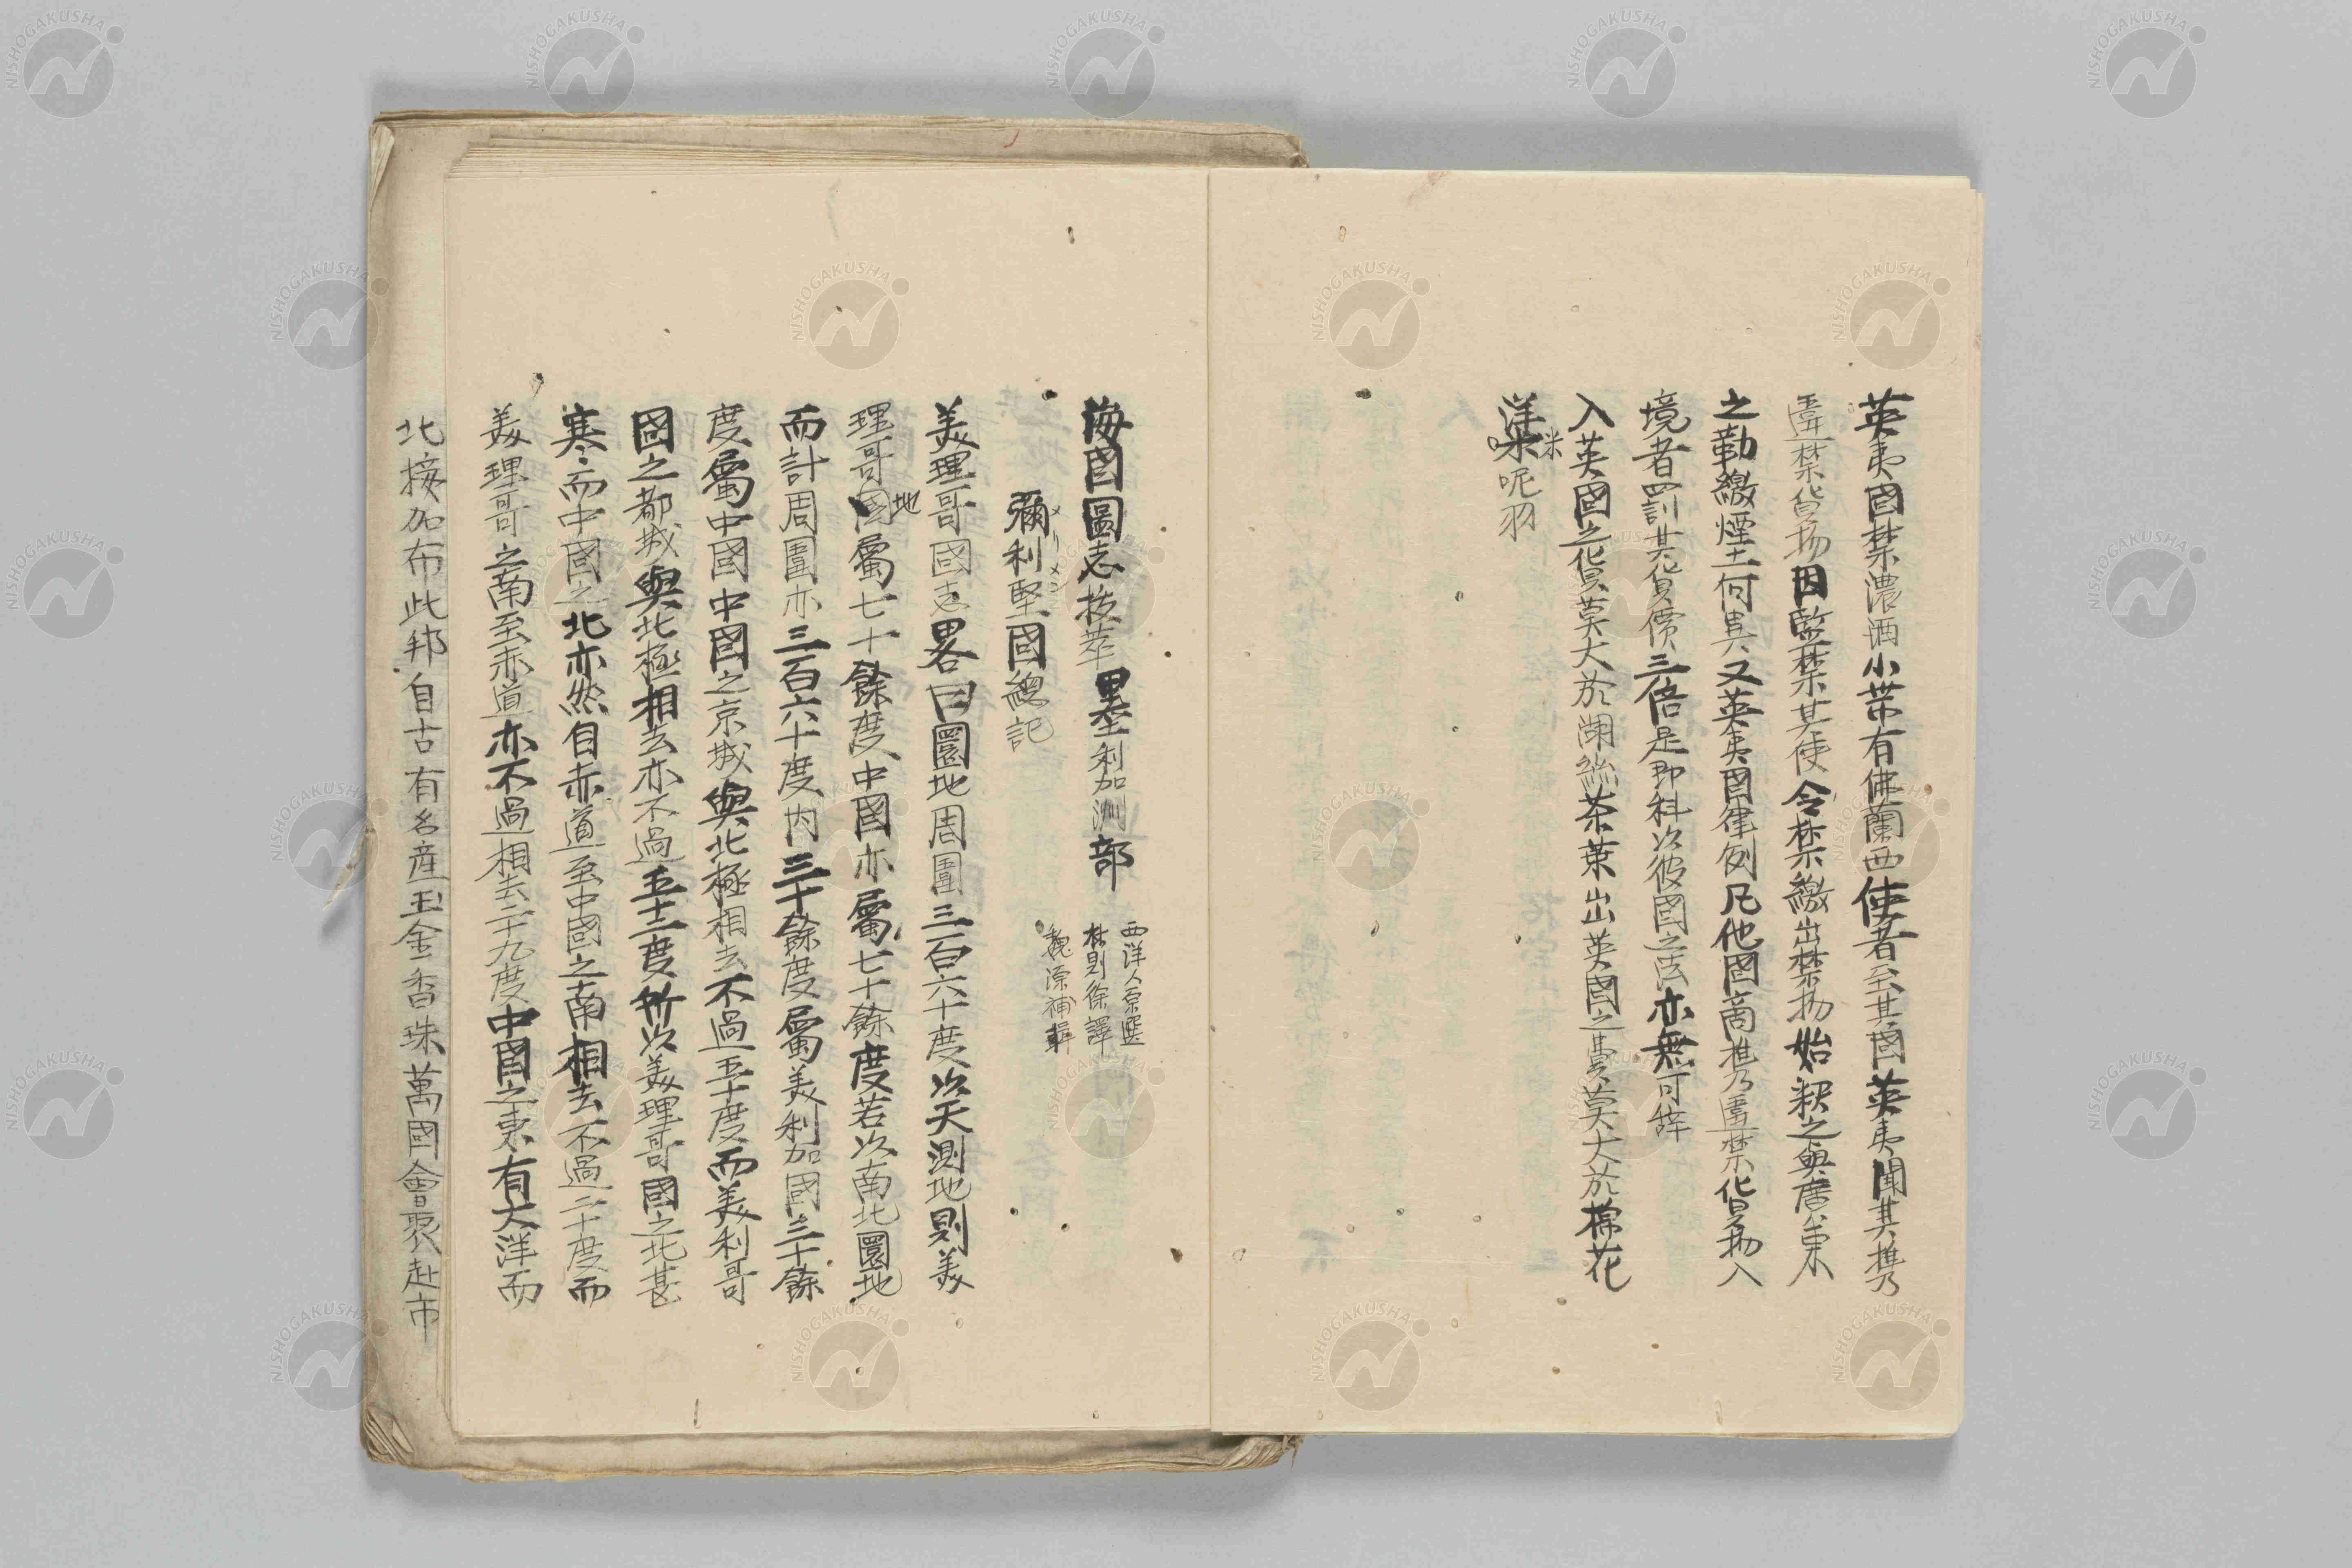 英夷國禁濃洒小帯有佛蘭西使者至其國英夷聞其携
違禁貨物因監禁其使令禁繳出禁物始釈之與廣東
之勒繳煙土何異又英夷國律例凡他國商携違禁貨物入
境者罰其貨價三倍是即科以彼國之法亦無可辞
入英國之貨莫大於湖絲茶葉出英國之貨莫大於棉花
洋米呢羽
海國圖志抜萃 墨利加洲部
西洋人原選
林則徐譯
魏源補輯
彌利堅國總記
メリメン
美理哥國志畧曰圜地周圍三百六十度以天測地則美
理哥國地屬七十餘度中國亦屬七十餘度若以南北圜地
而計周圍亦三百六十度内三十餘度屬美利加國三十餘
度屬中國中國之京城與北極相去不過五十度而美利哥
國之都城與北極相去亦不過五十二度所以美理哥國之北甚
寒而中國之北亦然自赤道至中國之南相去不過二十度而
美理哥之南至赤道亦不過相去二十九度中國之東有大洋而
北接加布此邦自古有名産玉金香珠萬國會聚赴市
NISHOGAKUSHA